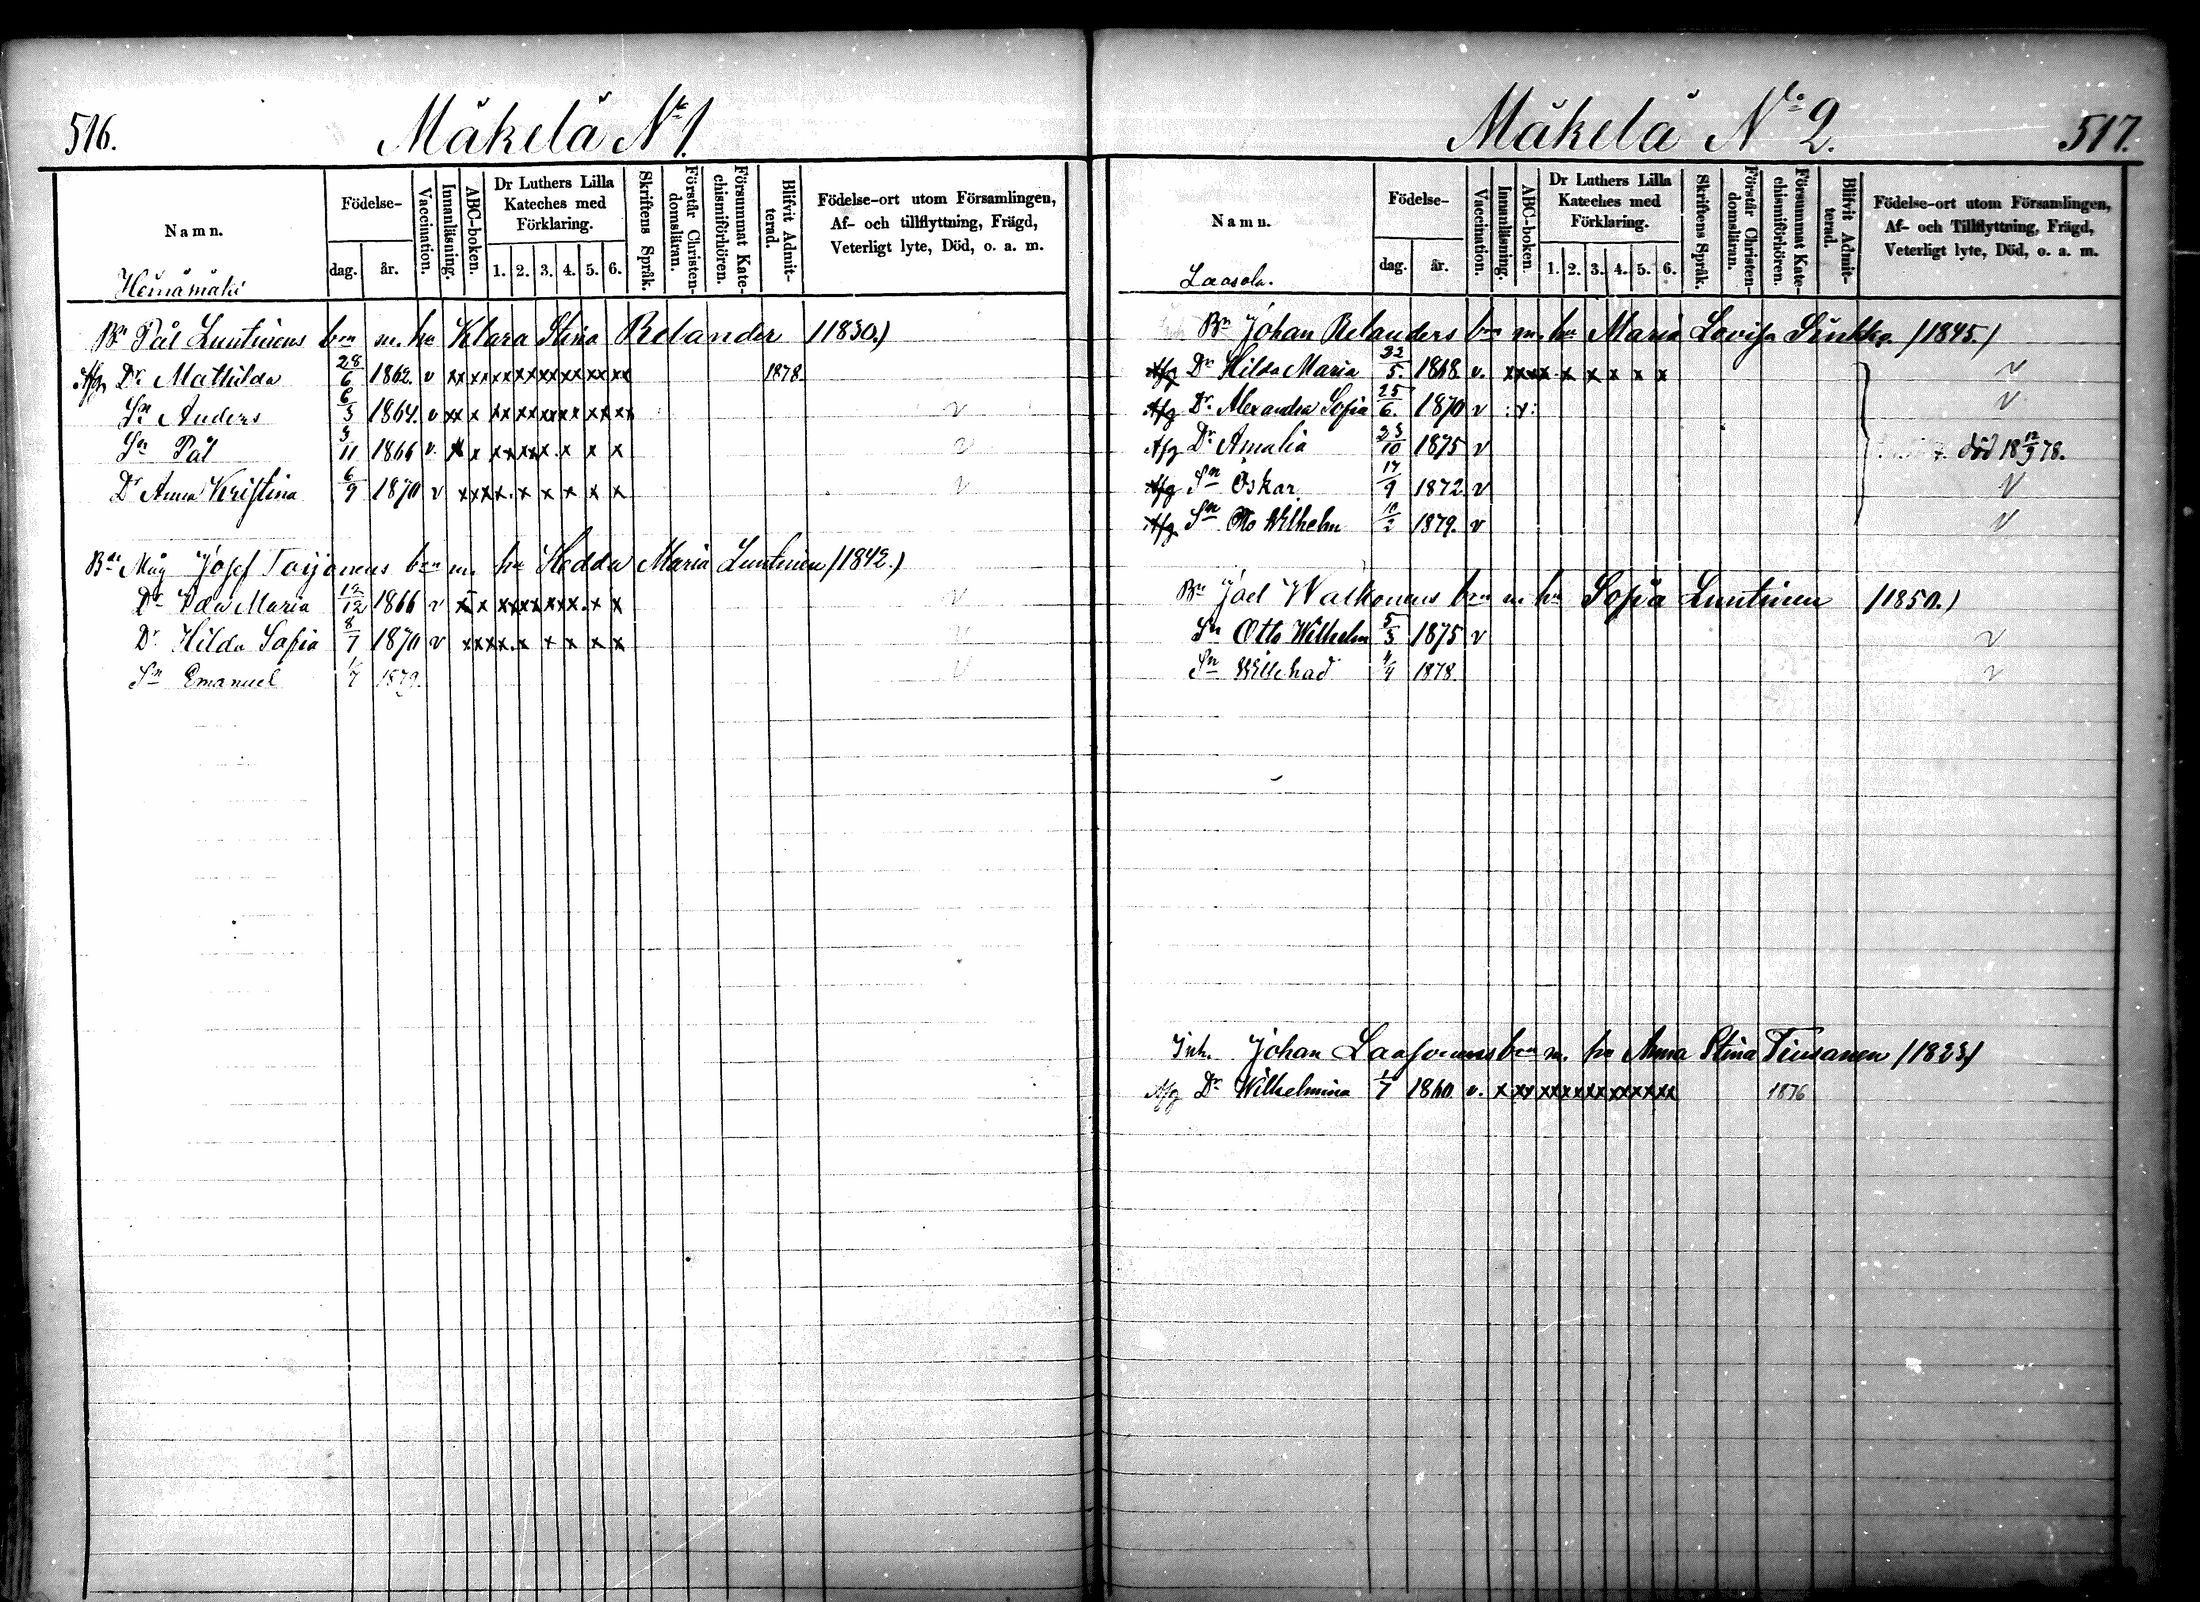 516.
Mäkelä No 1.
Namn.
Födelse-
dag.
år.
Vaccination.
Innanläsning.
ABC-boken.
Dr Luthers Lilla Kateches med Förklaring.
1. 2. 3. 4. 5. 6.
Skriftens Språk.
Förstår Christendomsläran.
Försummat Katechismiförhören.
Blifvit Admitterad.
Födelse-ort utom Församlingen,
Af- och tillflyttning, Frägd,
Veterligt lyte, Död, o. a. m.
Heinämäki
Bn Pål Luntinens bn m. ha Klara Stina Relander /1830.)
Afg Dr Mathilda 28/6 1862. v xx xx xx xx xx xx xx xx 1878.
Sn Anders 6/3 1864. v xx x xx xx xx xx xx xx v
Sn Pål 3/11 1866 v. x x xx xx x x x x v
Dr Anna Kristina 6/9 1870 v xx xx x x x x x v
Bn Måg Josef Toijonens bn m. ha Hedda Maria Luntinen /1842.)
Dr Ida Maria 12/12 1866 v x x xx xx xx x. x x v
Dr Hilda Sofia 8/7 1870 v xx xx. x x x x x v
Sn Emanuel 1/7 1879. v
517.
Mäkelä No 2.
Namn.
Födelse-
dag.
år.
Vaccination.
Innanläsning.
ABC-boken.
Dr Luthers Lilla Kateches med Förklaring.
1. 2. 3. 4. 5. 6.
Skriftens Språk.
Förstår Christendomsläran.
Försummat Katechismiförhören.
Blifvit Admitterad.
Födelse-ort utom Församlingen,
Af- och Tillflyttning, Frägd,
Veterligt lyte, Död, o. a. m.
Laasola.
Bn Johan Relanders bn m. ha Maria Lovisa /1845.)
Afg Dr Hilda Maria 22/5. 1868 v. xx xx x x x x x v
Afg Dr. Alexandra Sofia 25/6. 1870 v :x: v
Afg Dr Amalia 23/10 1875 v död 18 12/9 78.
Afg Sn Oskar. 17/9 1872 v v
Afg Sn Otto Wilhelm 10/2 1879. v v
Bn Joel Walkonens bn m. ha Sofia Luntinen /1850.)
Sn Otto Wilhelm 5/3 1875 v v
Sn Willehad 4/9 1878. v
Inh. Johan Laasonens bn m. ha Anna Stina Tiusanen /1823)
Afg Dr Wilhelmina 1/7 1860. v. x xx xx xx xx xx xx xx 1876